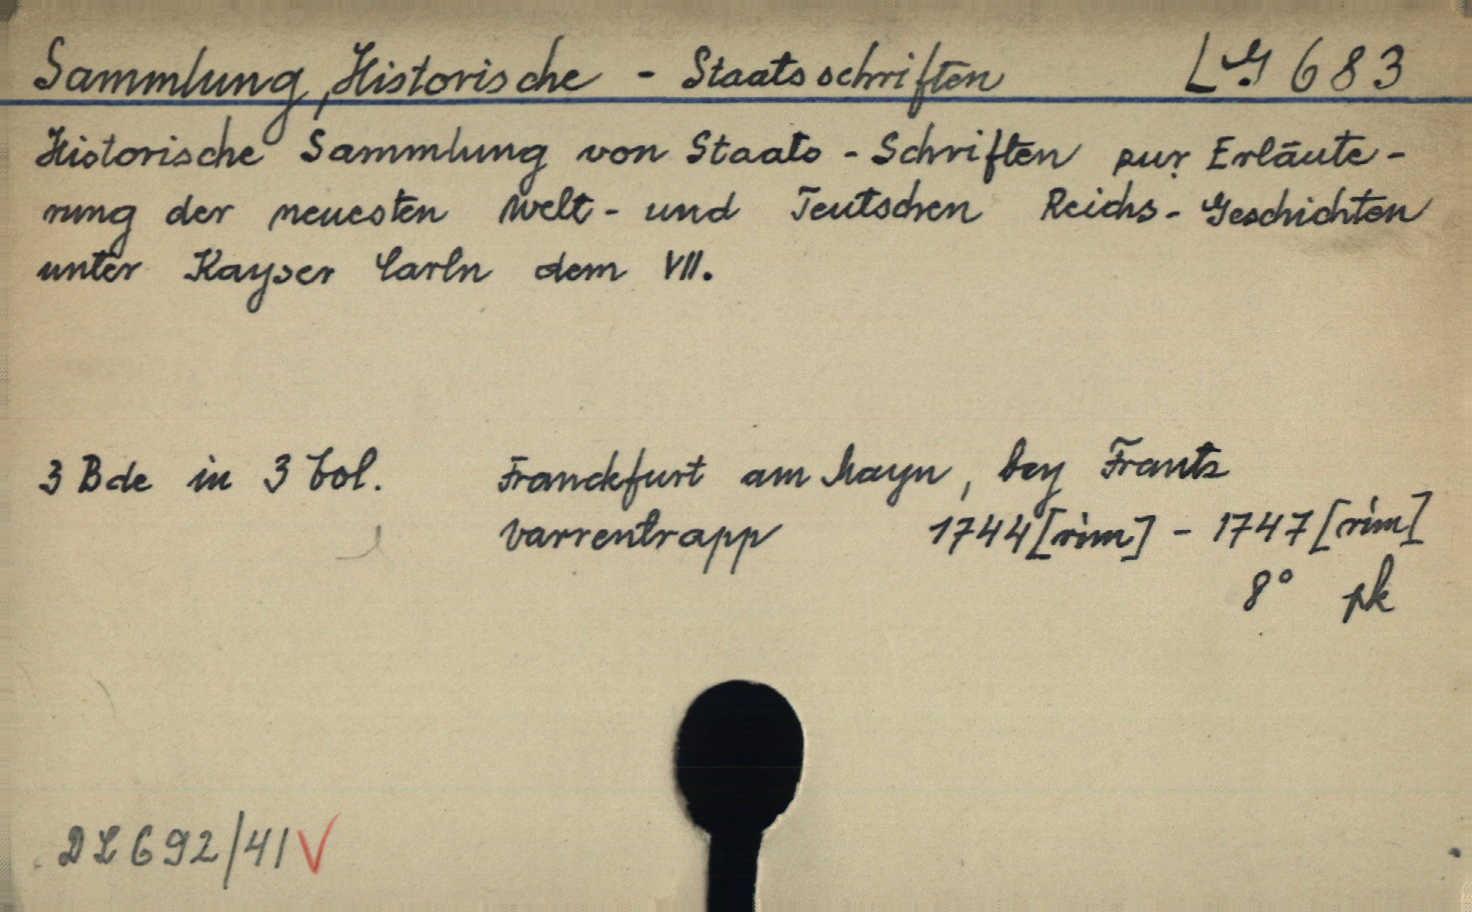 Sammlung, Historische - Staatsschriften LG 683
Historische Sammlung von Staats-Schriften zur Erläute-
rung der neuesten Welt- und Teutschen Reichs-Geschichten
unter Kayser Carln dem VII.
3 Bde in 3 Vol. Franckfurt am Mayn, bey Frantz
Varrentrapp 1744 [rim] - 1747 [rim]
8° pk
DL 692/41 V